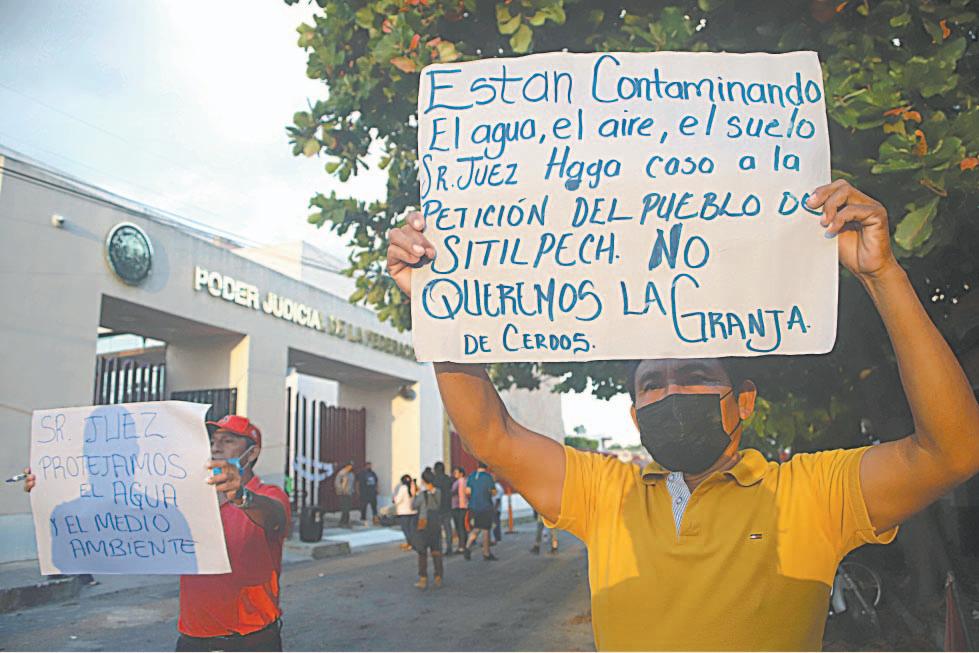 Están Contaminando
El agua, el aire, el suelo
SR. JUEZ Haga caso a la
PETICIÓN DEL PUEBLO DE
SITILPECH. NO
QUEREMOS LA GRANJA.
DE CERDOS.
PODER JUDICIA DE LA FEDERACIÓN
SR. JUEZ
PROTEJAMOS
EL AGUA
Y EL MEDIO
AMBIENTE